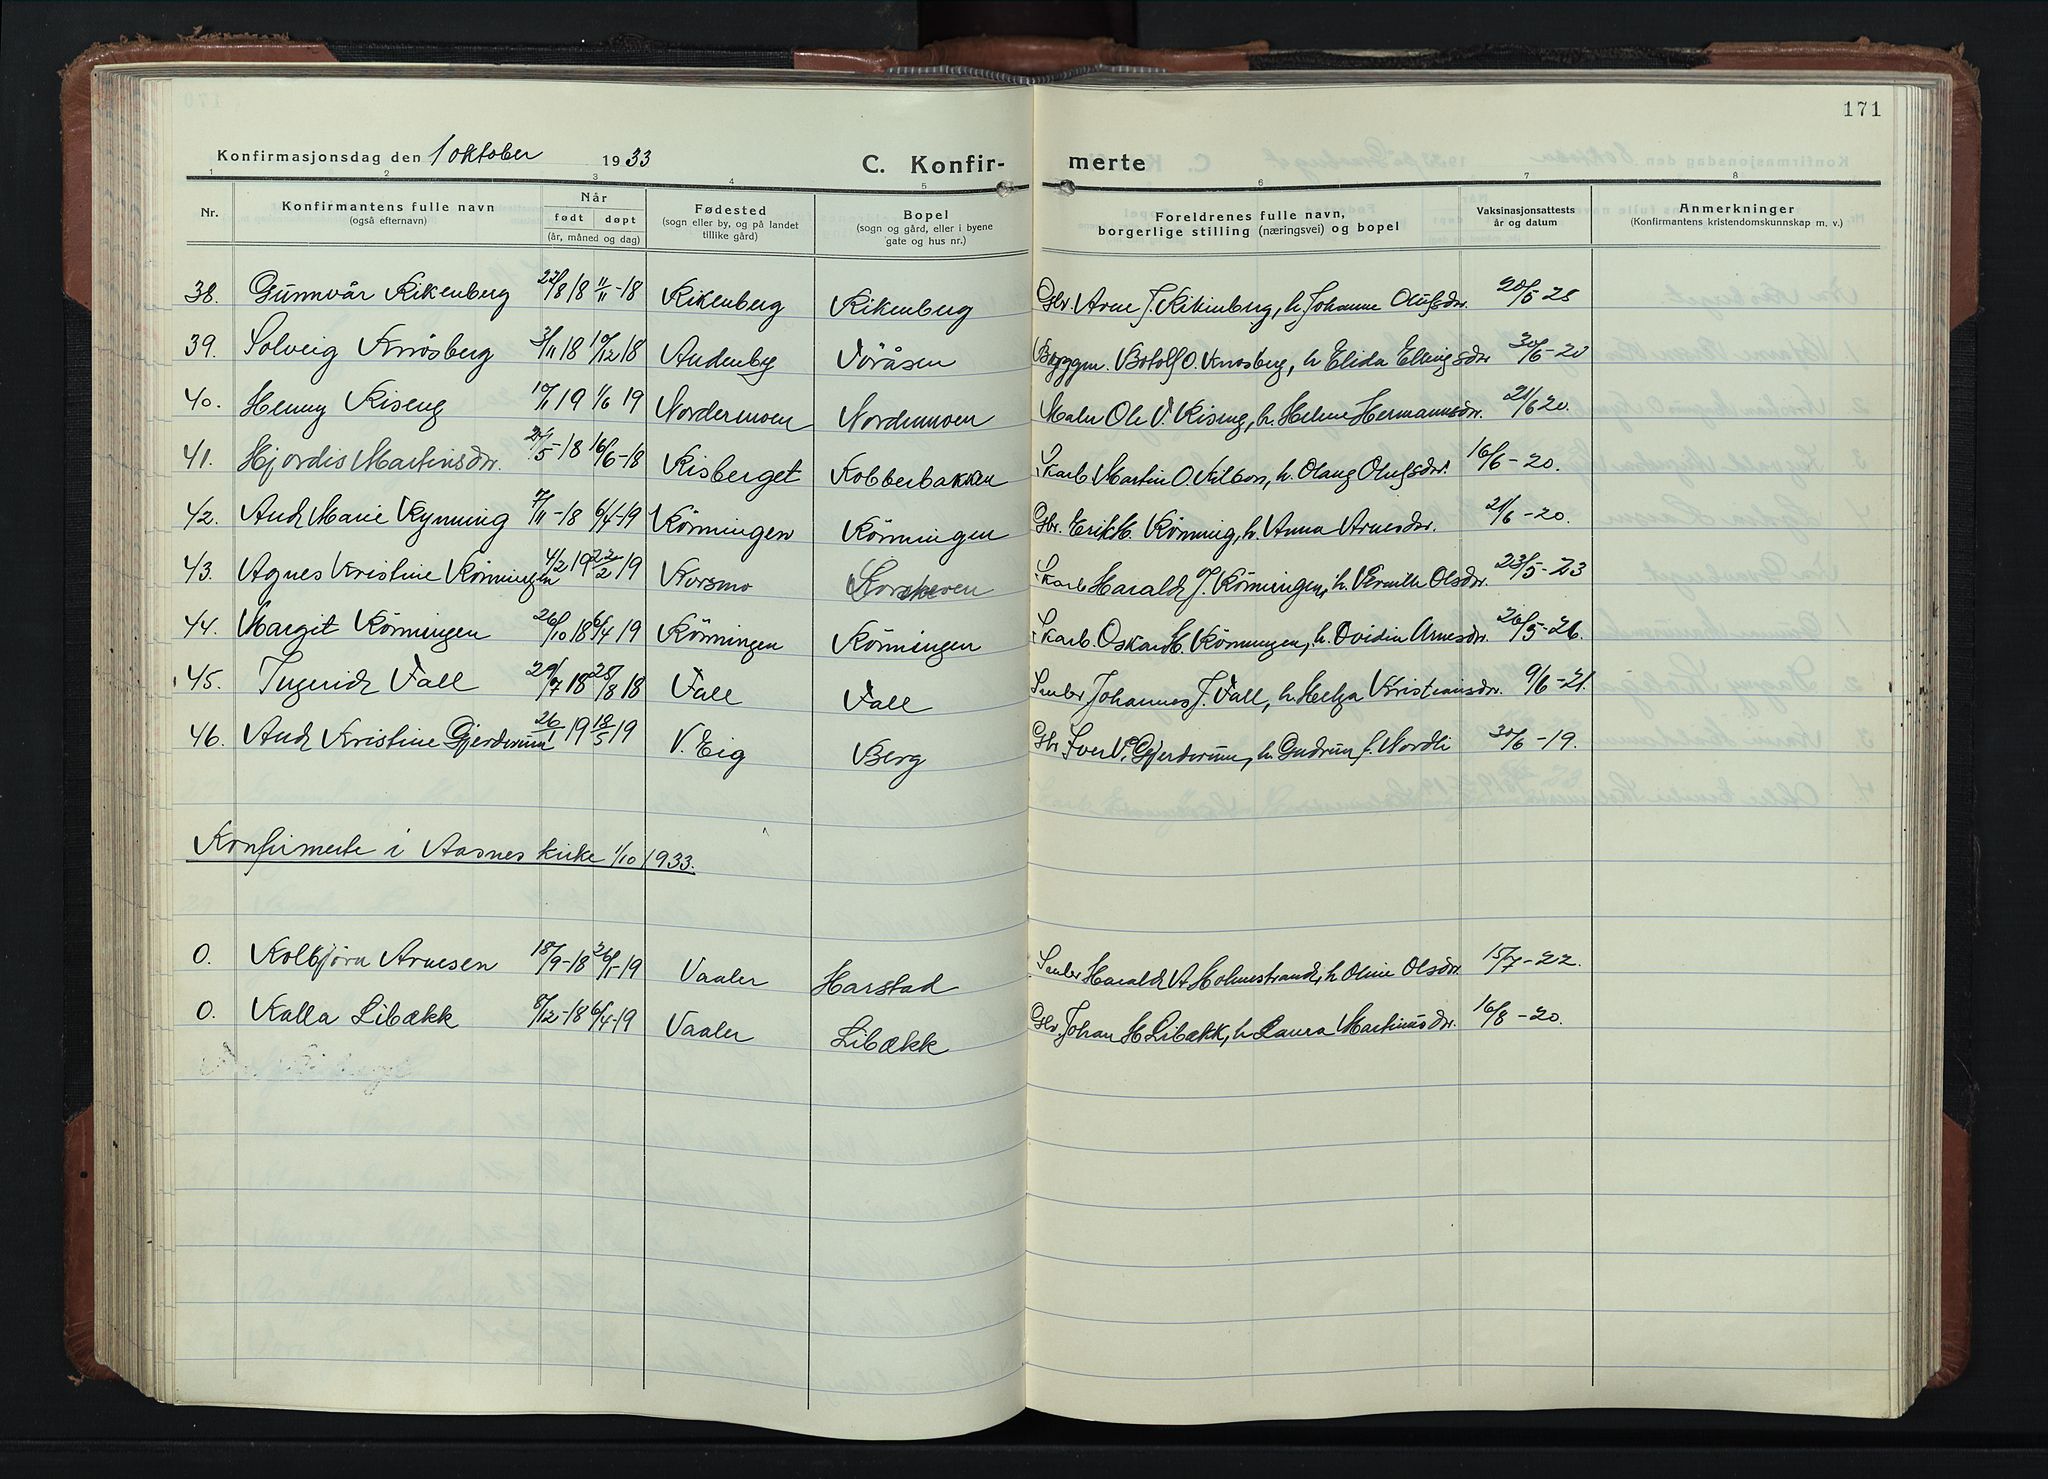 171
Konfirmasjonsdag den 1 oktober 1933
C. Konfir- merte
1 2 3 4 5 6 7 8
Nr. Konfirmantens fulle navn (også efternavn) Når født døpt (år, måned og dag) Fødested (sogn eller by, og på landet tillike gård) Bopel (sogn og gård, eller i byene gate og hus nr.) Foreldrenes fulle navn, borgerlige stilling (næringsvei) og bopel Vaksinasjonsattests år og datum Anmerkninger (Konfirmantens kristendomskunnskap m. v.)
38. Gunnvår Rikenberg 22/8 18 11/11-18 Rikenberg Rikenberg Gbr Arne J. Rikenberg, h. Johanne Olufsdr. 20/5-25
39. Solveig Knosberg 3/11 18 19/12 18 Audenby Föråsen Byggm. Botolf O. Knosberg, h Elida Ellingsdr 30/6-20
40. Henny Riseng 19/1 19 1/6 19 Nordermoen Nordermoen Maler Ole V. Riseng, h. Helene Hermannsdr. 21/6 20.
41. Hjordis Martinsdr. 21/5-18 16/6-18 Risberget Kobberbakken Skarb Martin O. Nilsen, h. Olaug Olufsdr. 16/6-20.
42. Aud Marie Rynning 7/11-18 6/4-19 Rönningen Rönningen Gbr. Erik H. Rönning, h. Anna Arnesdr. 21/6-20.
43. Agnes Kristine Rönningen 4/2 19 22/2 19 Norsmo Skarb Harald J. Rönningen, h. Olsdr. 23/5-23
44. Margit Rönningen 26/10 18 6/4 19 Rönningen Rönningen Skarb. Oskar H. Rönningen, h. Ovidia Arnesdr. 26/5-26.
45. Ingerid Fall 29/7 18 25/8 18 Fall Fall Smbr Johannes J. Fall, h. Helga Kristiansdr. 9/6-21.
46. Aud Kristine Gjerdrum 26/1 19 18/5 19 V. Eig Berg Gbr Iver V. Gjerdrum, h. Gudrun f. Nordli 30/6-19.
Konfirmerte i Aasnes kirke 1/10 1933.
0. Kolbjörn Arnesen 18/9-18 26/1-19 Vaaler Harstad Smbr Harald A Holmestrand, h Oline Olsdr 15/7-22.
0. Kalla Libækk 8/12-18 6/4-19 Vaaler Libækk Gbr. Johan H. Libækk, h Laura Martinusdr. 16/8-20.